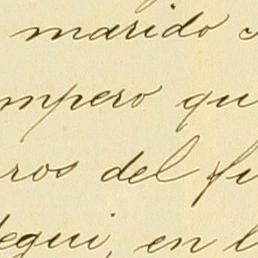 marido
mpero qu
ros del fu
legui, en l